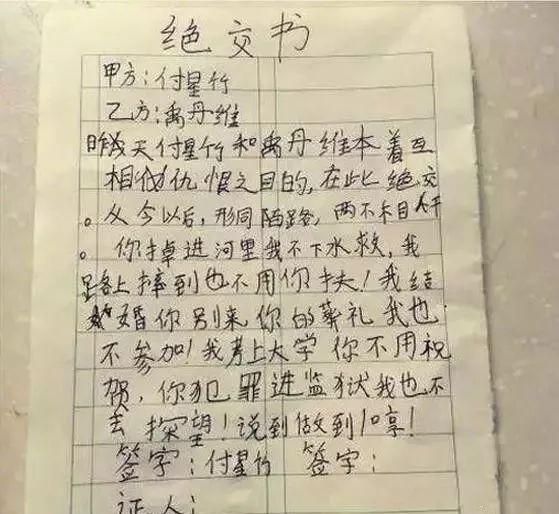 绝交书
甲方:付星竹
乙方:禹丹维
昨天付星竹和禹丹维本着互
相仇恨之目的,在此绝交
。从今以后,形同陌路,两不相干
。你掉进河里我不下水救,我
路上摔到也不用你扶!我结
婚你别来你的葬礼我也
不参加!我考上大学你不用祝
贺,你犯罪进监狱我也不
去探望!说到做到!哼!
签字:付星竹 签字:
证人: